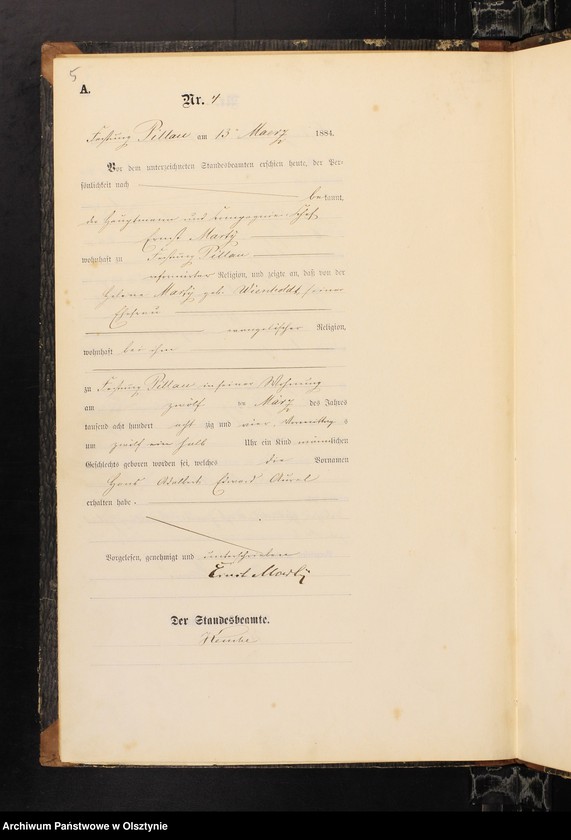 5
A.
Nr. 4
Festung Pillau am 13ten Maerz 1884.
Vor dem unterzeichneten Standesbeamten erschien heute, der Per-
sönlichkeit nach
bekannt,
der Hauptmann und Compagnie Chef
Ernst Marty
wohnhaft zu Festung Pillau
reformirter Religion, und zeigte an, daß von der
Helene Marty geb. Wienholdt, seiner
Ehefrau
evangelischer Religion,
wohnhaft bei ihm
zu Festung Pillau in seiner Wohnung
am zwölf ten März des Jahres
tausend acht hundert acht zig und vier, Vormittags
um zwölf ein halb Uhr ein Kind männlichen
Geschlechts geboren worden sei, welches die Vornamen
Hans Adalbert Edward Aurel
erhalten habe.
Vorgelesen, genehmigt und unterschrieben
Ernst Marty
Der Standesbeamte.
Archiwum Państwowe w Olsztynie